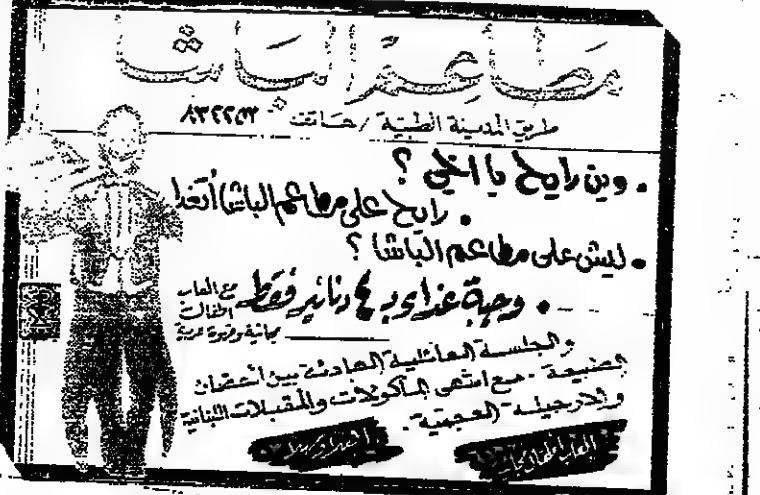 مطاعم الباشا
طريق المدينة الطبية / هاتف ٨٣٢٢٥٣
• وين رايح يا اخي ؟
• رايح على مطاعم الباشا أتغدا
• ليش على مطاعم الباشا ؟
• وجبة غداء بـ ٤ دنانير فقط
مع العاب
اطفال
مجانية وقهوة عربية
والجلسة العائلية الهادئة بين أحضان
الطبيعة - مع اشهى المأكولات والمقبلات اللبنانية
والارجيلة العجمية.